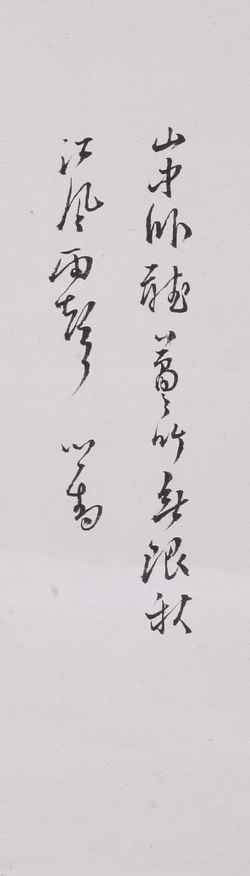 山中卧聽蕭蕭竹無限秋
江風雨聲　心畬